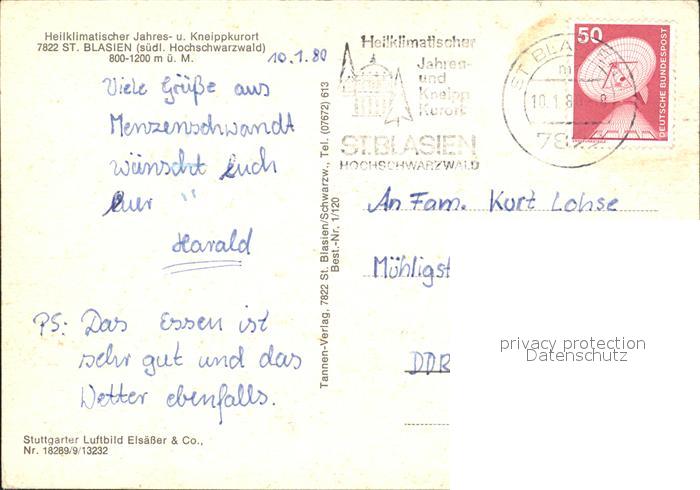 Heilklimatischer Jahres- u. Kneippkurort
7822 ST. BLASIEN (südl. Hochschwarzwald)
800-1200 m ü. M.
10.1.80
Viele Grüße aus
Menzenschwandt
wünscht Euch
Euer "
Harald
PS: Das Essen ist
sehr gut und das
Wetter ebenfalls.
Stuttgarter Luftbild Elsäßer & Co.,
Nr. 18289/9/13232
Tannen-Verlag, 7822 St. Blasien/Schwarzw., Tel. (07672) 613
Best.-Nr. 1/120
Heilklimatischer
Jahres-
und
Kneipp
Kurort
ST. BLASIEN
HOCHSCHWARZWALD
ST BLA
m
10.1.8
782
50
DEUTSCHE BUNDESPOST
An Fam. Kurt Lohse
Mühligst
DDR
privacy protection
Datenschutz